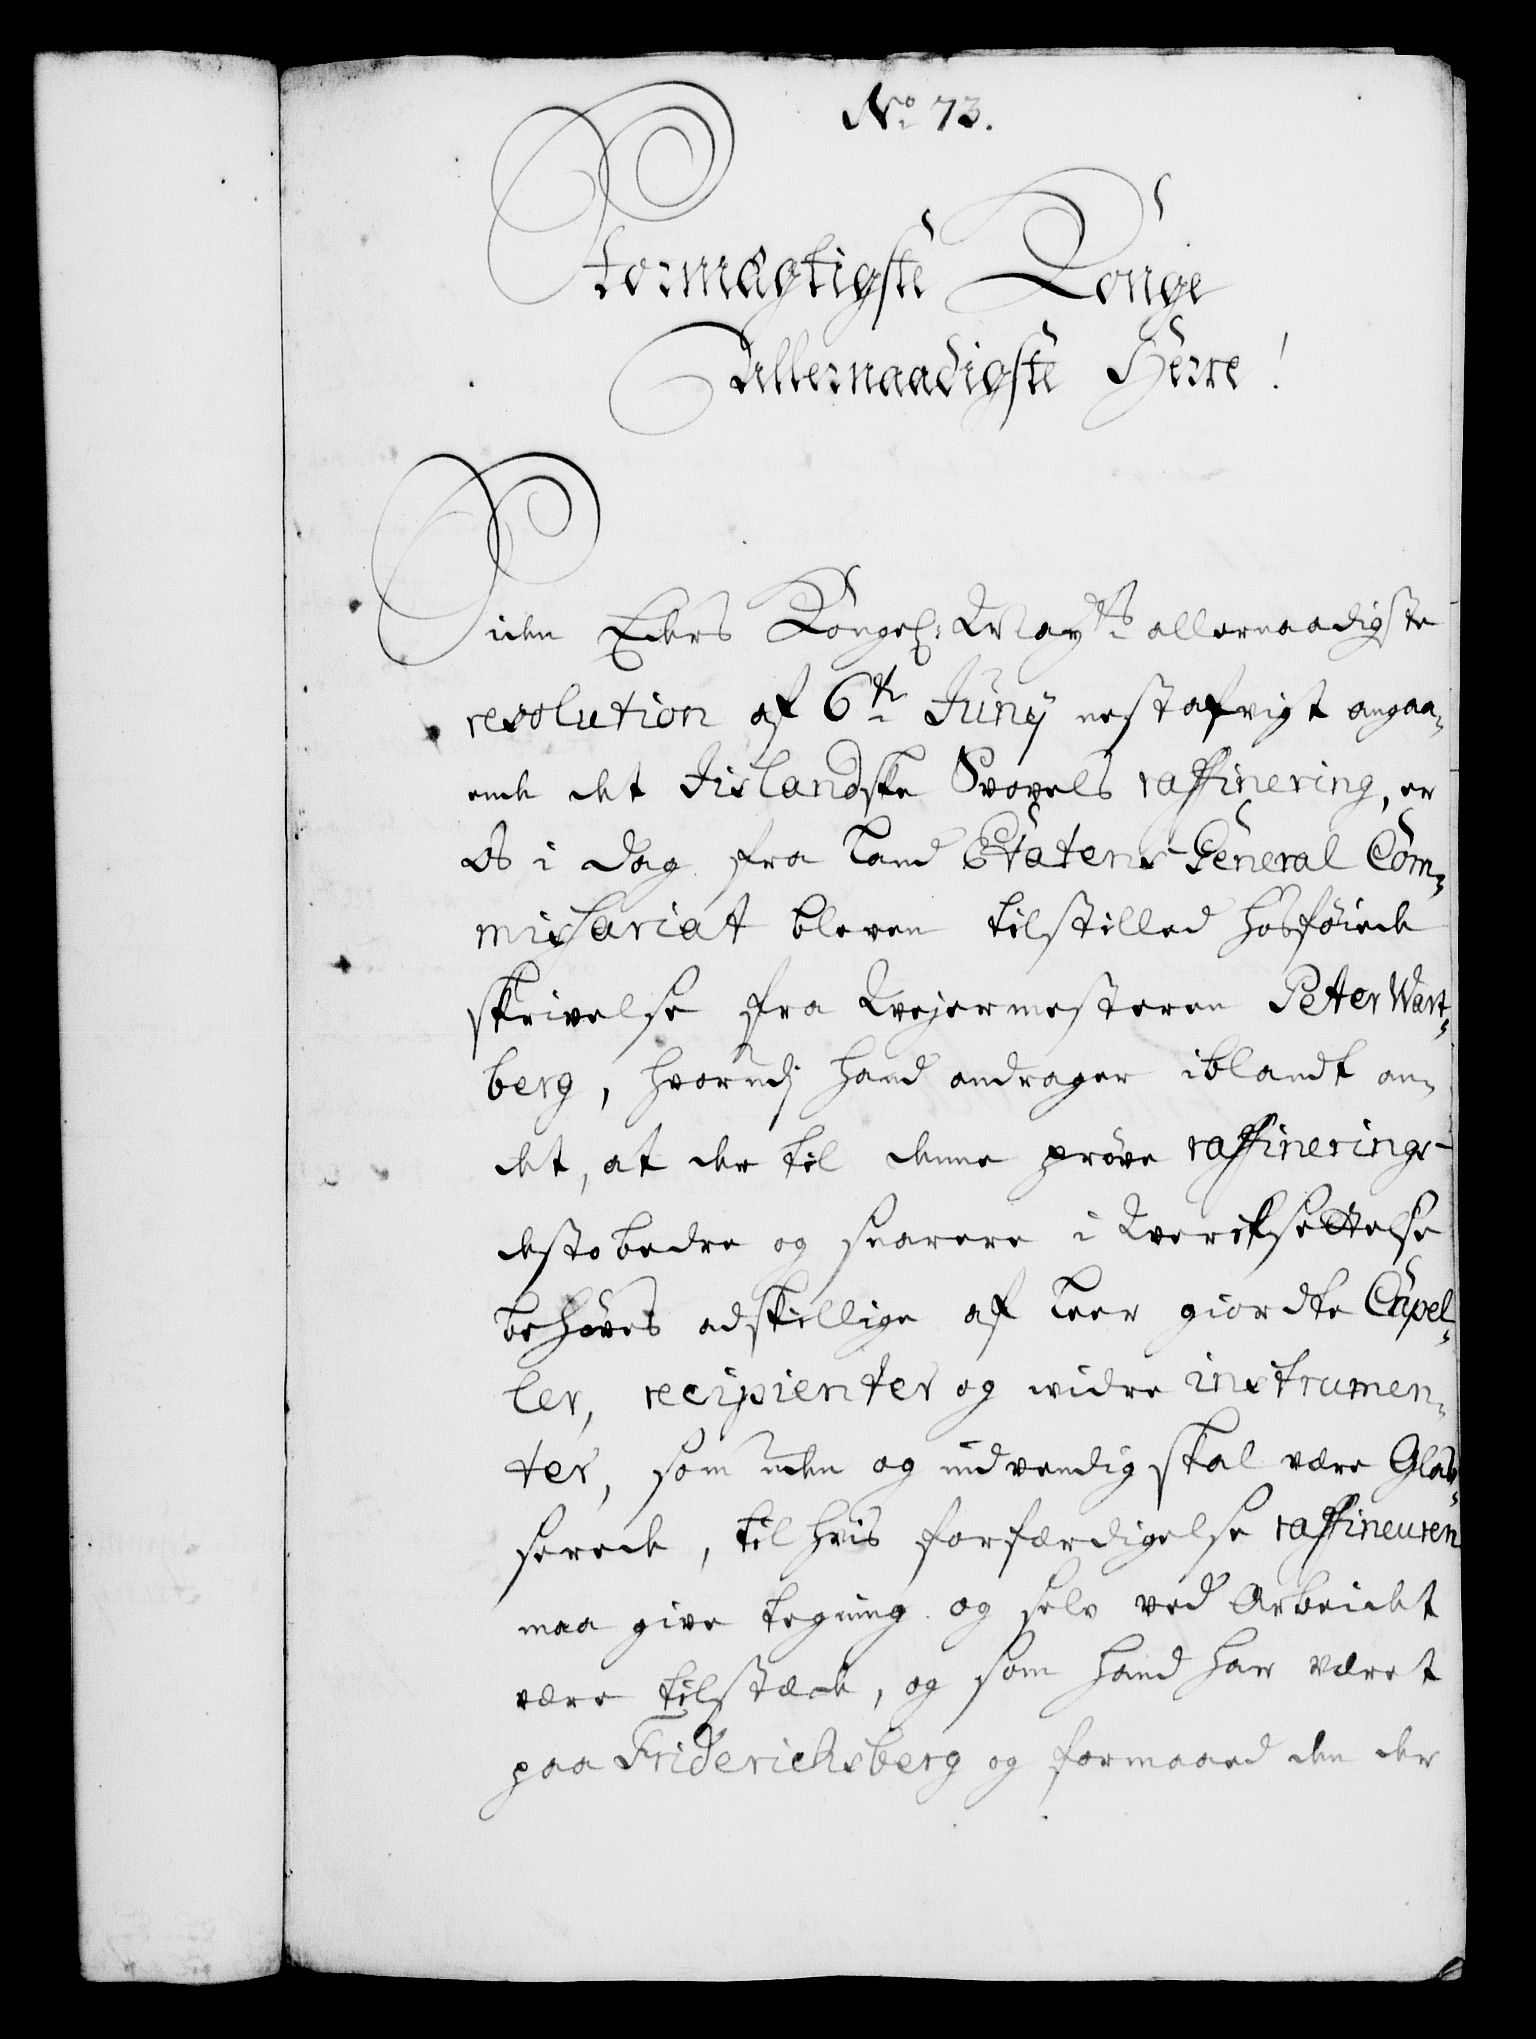 No 73.
Stormægtigste Konge
Allernaadigste Herre!
Siden Eders Kongel: Mayts allernaadigste
resolution af 6te Junij nestafvigt angaa-
ende det Jislandske Svovels raffinering, er
os i dag fra Land Etatens General Com-
missariat bleven tilstilled hosføiede
skrivelse fra Weyermesteren Peter Wart-
berg, hvorudj hand andrager iblandt an-
det, at der til denne prøve raffinerings
desto bedre og snarere i Werksettelse
behøves adskillige af Leer giordte Cupel-
ler, recipienter og widre instrumen-
ter, som uden og indvendig skal være Glas-
serede, til hvis forfærdigelse raffineuren
maa give tegning og selv ved Arbeidet
være tilstæde, og som hand har været
paa Friderichsberg og formaaed den der